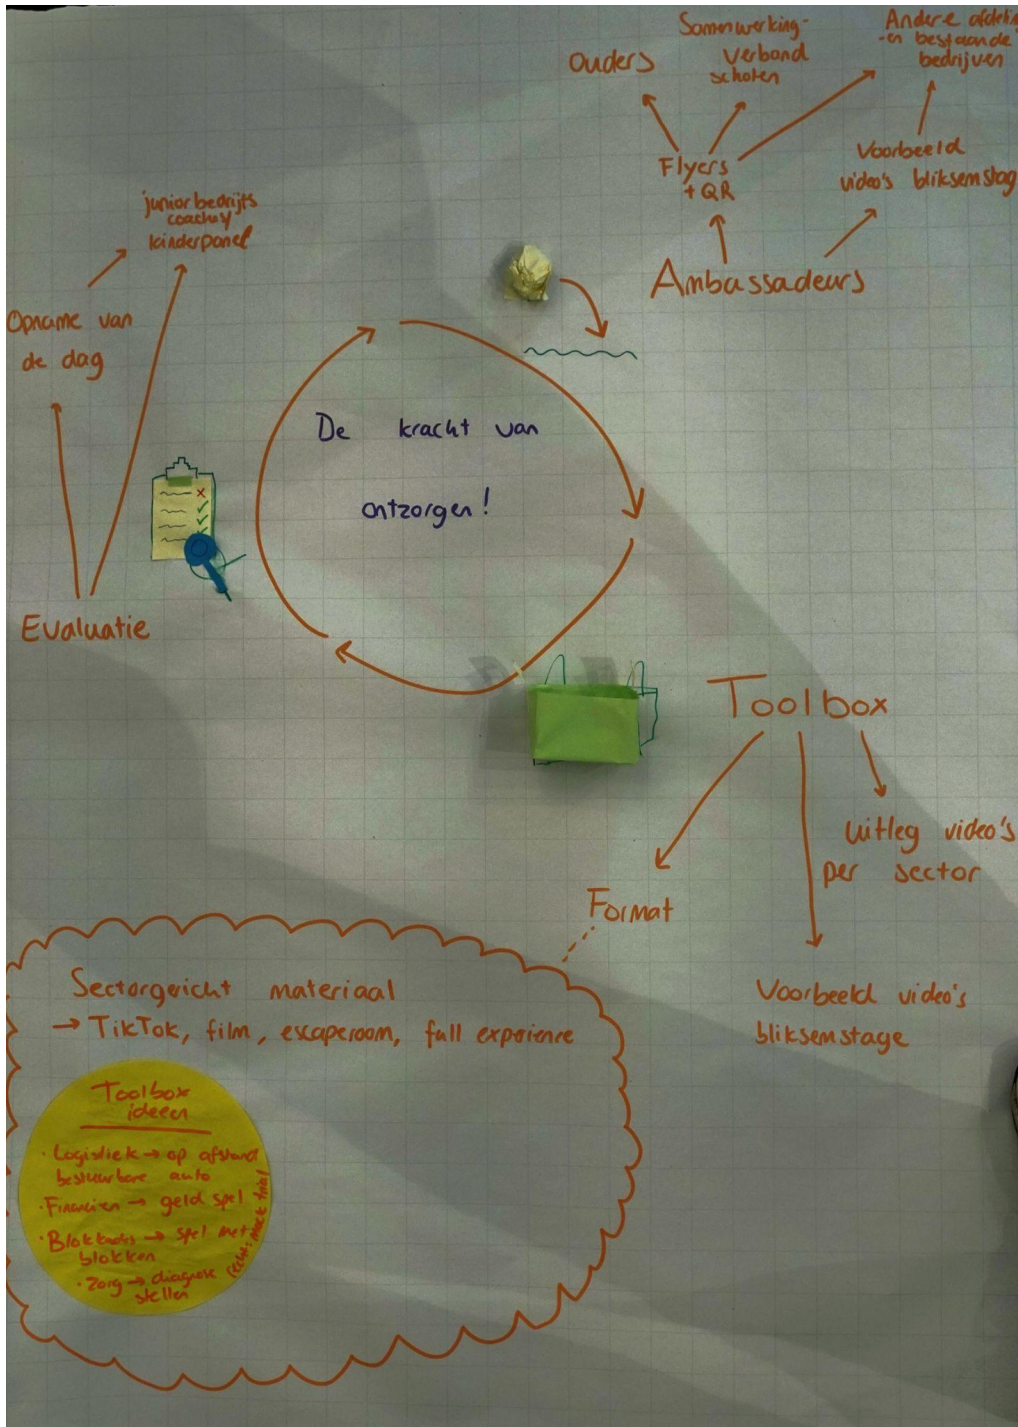 Ouders
Samenwerking-
verband
scholen
Andere afdelin
-en bestaande
bedrijven
Flyers
+ QR
Voorbeeld
video's bliksemstag
Ambassadeurs
junior bedrijfs
coach
kinderpanel
Opname van
de dag
Evaluatie
De kracht van
ontzorgen!
Toolbox
Uitleg video's
per sector
Format
Voorbeeld video's
bliksemstage
Sectorgericht materiaal
→ TikTok, film, escaperoom, full experience
Toolbox
ideeen
· Logistiek → op afstand
bestuurbare auto
· Financien → geld spel
→ spel met
blokken
· Zorg → diagnose
stellen
recht: mock trial